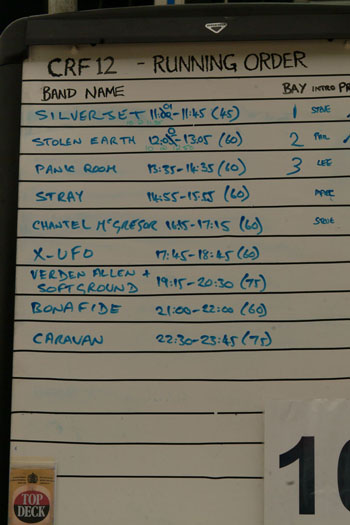 CRF12 - RUNNING ORDER
BAND NAME BAY INTRO PR
SILVERSET 11:00-11:45 (45) 1 STEVE
STOLEN EARTH 12:05-13:05 (60) 2 PHIL
PANIC ROOM 13:35-14:35 (60) 3 LEE
STRAY 14:55-15:55 (60)
CHANTEL McGREGOR 16:15-17:15 (60) STEVE
X-UFO 17:45-18:45 (60)
VERDEN ALLEN +
SOFTGROUND 19:15-20:30 (75)
BONAFIDE 21:00-22:00 (60)
CARAVAN 22:30-23:45 (75)
10
TOP
DECK